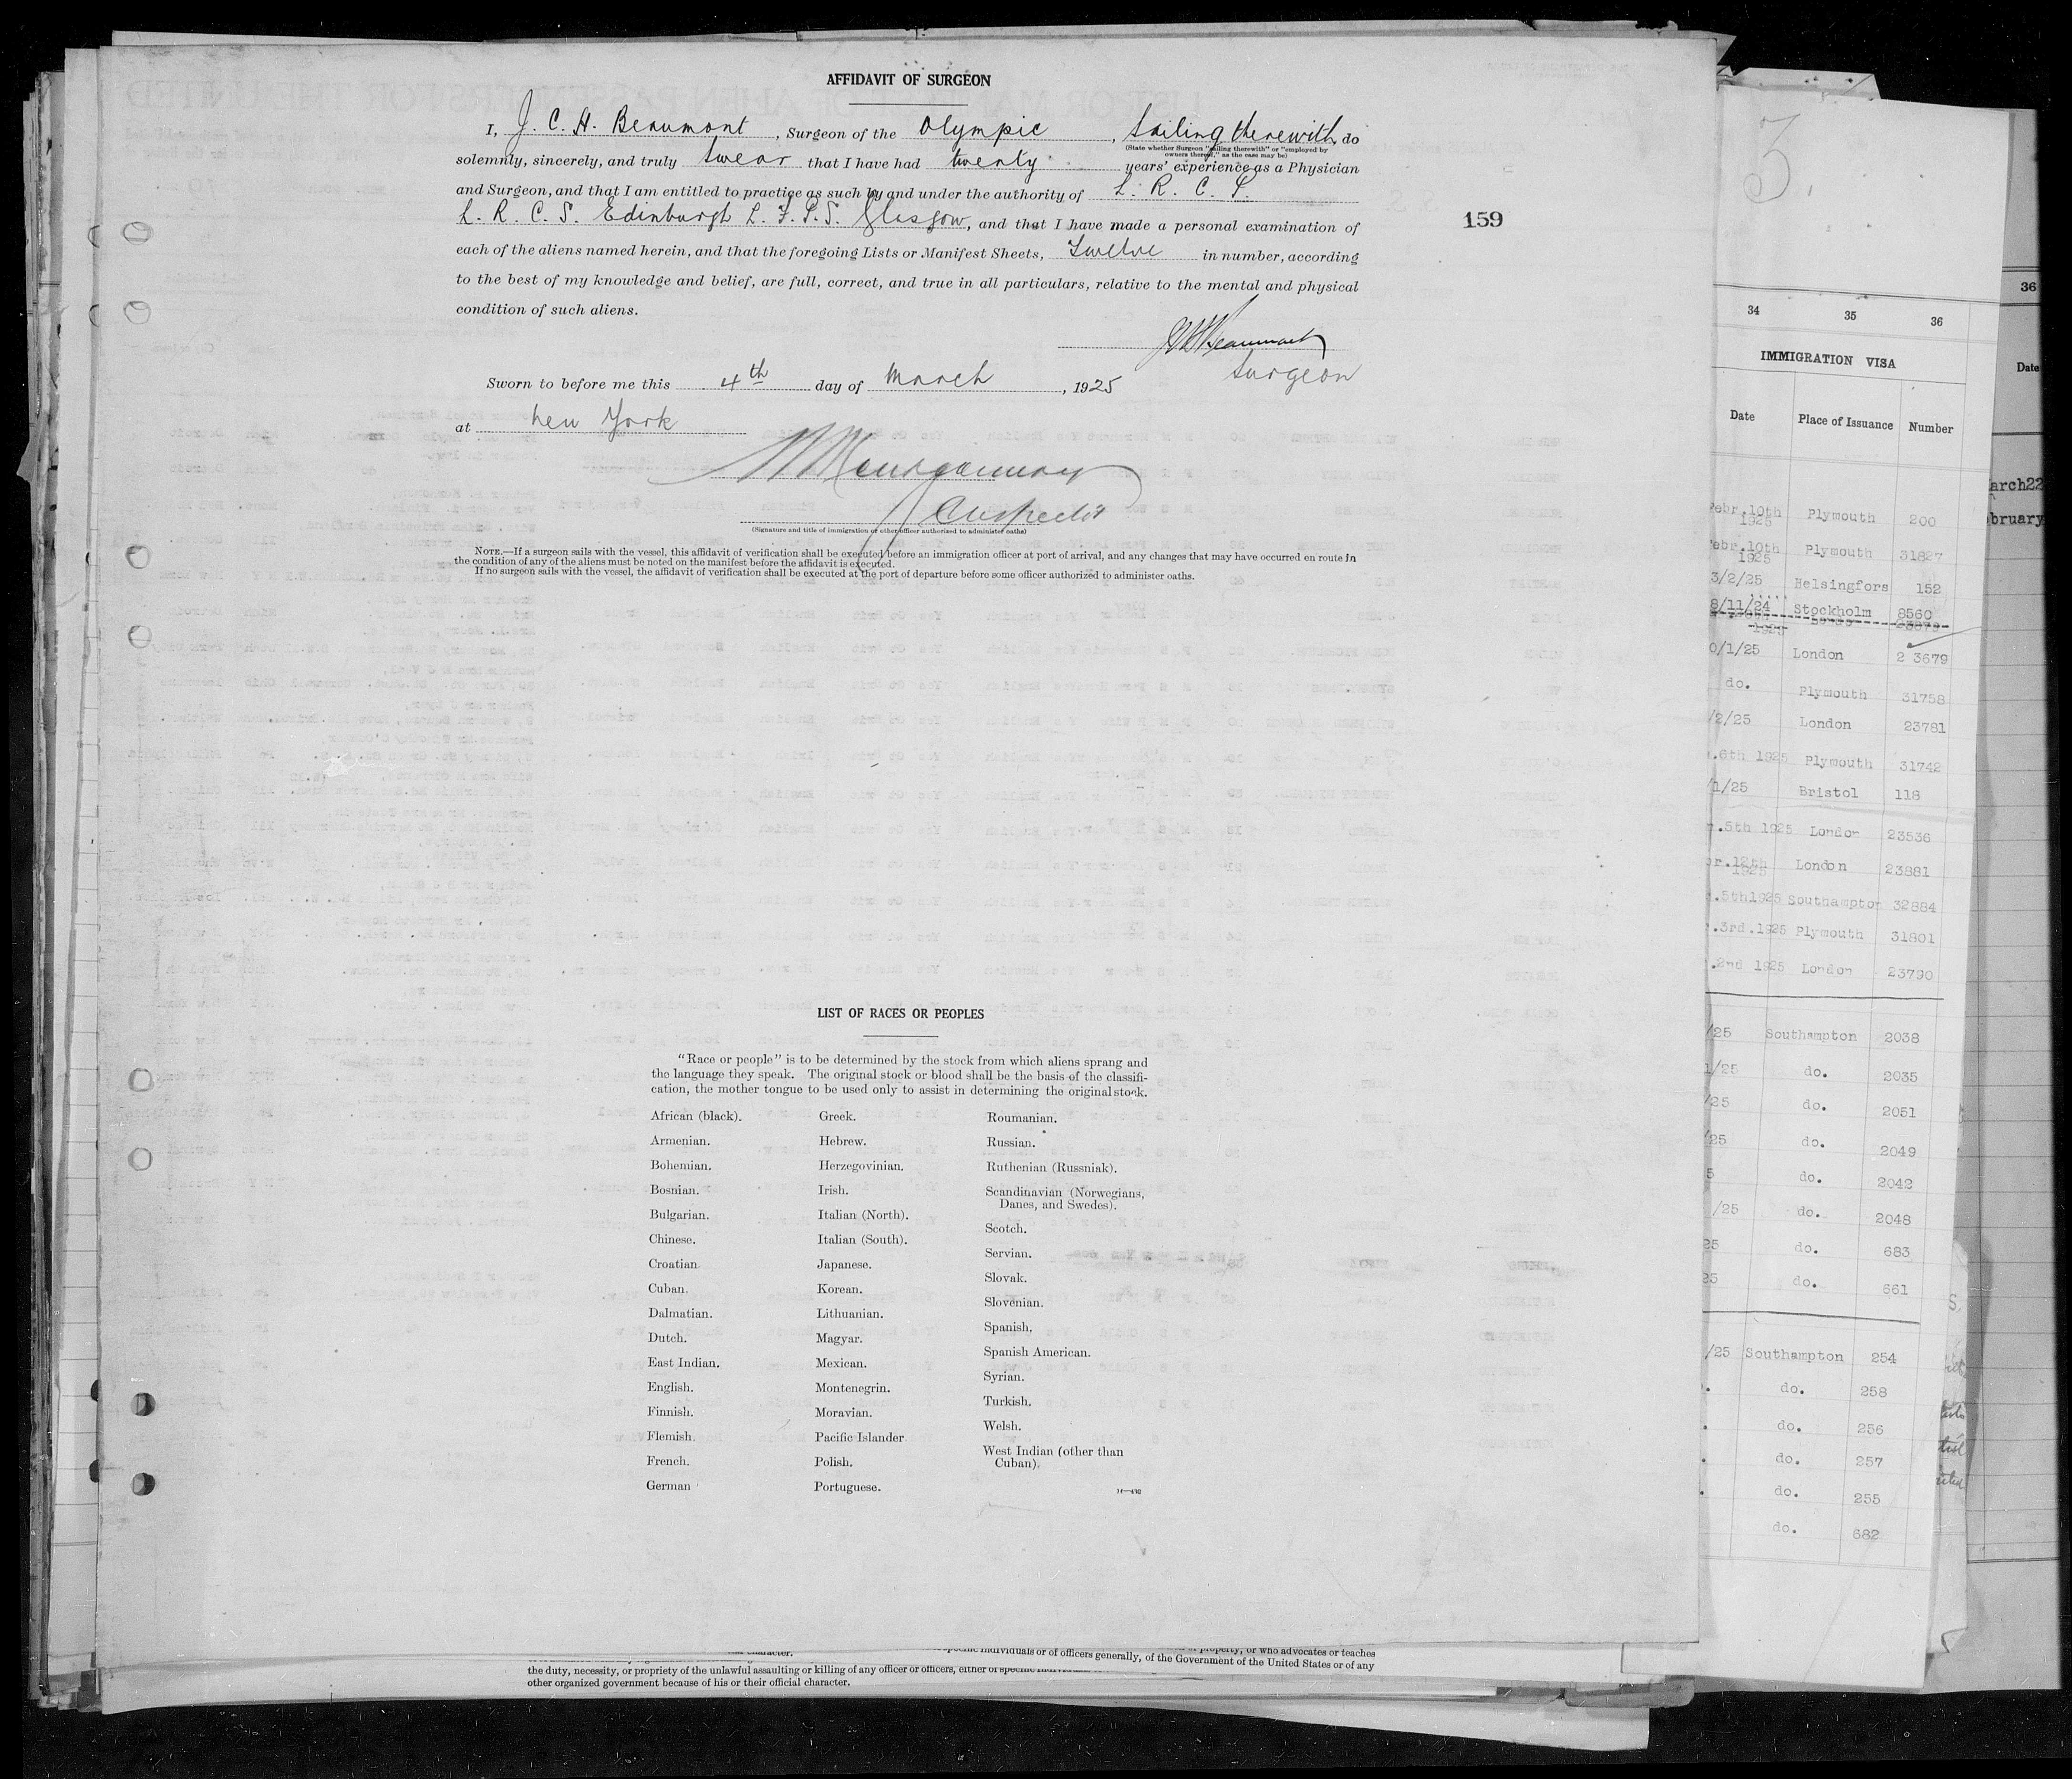 AFFIDAVIT OF SURGEON
I, J. C. H. Beaumont, Surgeon of the Olympic, Sailing therewith, do
(State whether Surgeon "sailing therewith" or "employed by
owners thereof," as the case may be)
solemnly, sincerely, and truly swear that I have had twenty years' experience as a Physician
and Surgeon, and that I am entitled to practice as such by and under the authority of L. R. C. P.
L. R. C. S. Edinburgh L. F. P. S. Glasgow, and that I have made a personal examination of
each of the aliens named herein, and that the foregoing Lists or Manifest Sheets, Twelve in number, according
to the best of my knowledge and belief, are full, correct, and true in all particulars, relative to the mental and physical
condition of such aliens.
159
JCHBeaumont
Surgeon
Sworn to before me this 4th day of March, 1925
at New York
Inspector
(Signature and title of immigration or other officer authorized to administer oaths)
NOTE.—If a surgeon sails with the vessel, this affidavit of verification shall be executed before an immigration officer at port of arrival, and any changes that may have occurred en route in
the condition of any of the aliens must be noted on the manifest before the affidavit is executed.
If no surgeon sails with the vessel, the affidavit of verification shall be executed at the port of departure before some officer authorized to administer oaths.
LIST OF RACES OR PEOPLES
"Race or people" is to be determined by the stock from which aliens sprang and
the language they speak. The original stock or blood shall be the basis of the classifi-
cation, the mother tongue to be used only to assist in determining the original stock.
African (black).
Armenian.
Bohemian.
Bosnian.
Bulgarian.
Chinese.
Croatian
Cuban.
Dalmatian.
Dutch.
East Indian.
English.
Finnish.
Flemish.
French.
German
Greek.
Hebrew.
Herzegovinian.
Irish.
Italian (North).
Italian (South).
Japanese.
Korean.
Lithuanian.
Magyar.
Mexican.
Montenegrin.
Moravian.
Pacific Islander
Polish.
Portuguese.
Roumanian.
Russian.
Ruthenian (Russniak).
Scandinavian (Norwegians,
Danes, and Swedes).
Scotch.
Servian.
Slovak.
Slovenian.
Spanish.
Spanish American.
Syrian.
Turkish.
Welsh.
West Indian (other than
Cuban).
character.
specific individuals or of officers generally, of the Government of the United States or of any
property, or who advocates or teaches
the duty, necessity, or propriety of the unlawful assaulting or killing of any officer or officers, either of
other organized government because of his or their official character.
3.
34 35 36
IMMIGRATION VISA
Date Place of Issuance Number
Febr.10th 1925 Plymouth 200
Febr.10th 1925 Plymouth 31827
3/2/25 Helsingfors 152
8/11/24 Stockholm 8560
0/1/25 London 2 3679
do. Plymouth 31758
/2/25 London 23781
.6th 1925 Plymouth 31742
/1/25 Bristol 118
.5th 1925 London 23536
br.12th 1925 London 23881
.5th1925 Southampton 32884
.3rd.1925 Plymouth 31801
.2nd 1925 London 23790
/25 Southampton 2038
1/25 do. 2035
/25 do. 2051
/25 do. 2049
5 do. 2042
/25 do. 2048
25 do. 683
25 do. 661
/25 Southampton 254
. do. 258
. do. 256
. do. 257
. do. 255
do. 682
36
Date
arch22
bruary